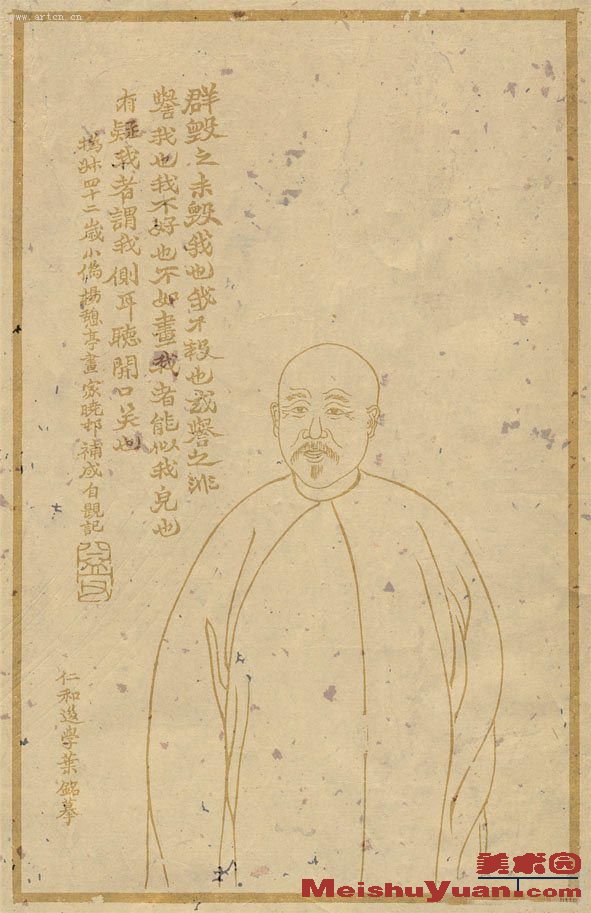 www.artcn.cn
群毀之未毀我也我不報也或譽之非
譽我也我不好也不如畫我者能似我皃也
有疑我者謂我側耳聽開口笑也
撝叔四十二歲小像楊憩亭畫家曉邨補成自題記
仁和後學葉銘摹
美术园
MeishuYuan.com